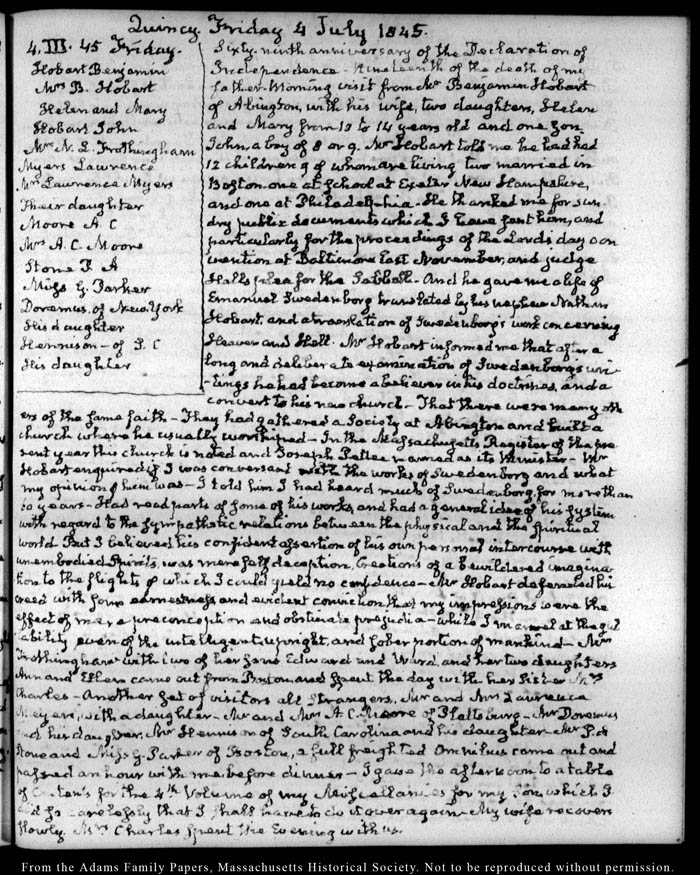 Quincy. Friday 4 July 1845.
4. III. 45 Friday.
Hobart Benjamin
Mrs B. Hobart
Helen and Mary
Hobart John
Mrs N. L. Frothingham
Myers Lawrence
Mrs Lawrence Myers
Their daughter
Moore A. C
Mrs A. C. Moore
Stone P A
Miss G. Parker
Doremus of New York
His daughter
Hennison – of S. C
His daughter
Sixty-ninth anniversary of the Declaration of
Independence – Nineteenth of the death of my
father – Morning visit from Mr Benjamin Hobart
of Abington, with his wife, two daughters, Helen
and Mary from 10 to 14 years old and one son
John, a boy of 8 or 9. Mr Hobart told me he had had
12 children 9 of whom are living two married in
Boston one at school at Exeter New Hampshire,
and one at Philadelphia – He thanked me for sun
dry public documents which I have sent him, and
particularly for the proceedings of the Lords day con
vention at Baltimore last November, and judge
Halls plea for the Sabbath – And he gave me a life of
Emanuel Swedenborg translated by his nephew Nathan
Hobart, and a translation of Swedenborg's work concerning
Heaven and Hell. Mr Hobart informed me that after a
long and deliberate examination of Swedenborgs wri-
-tings he had become a believer in his doctrines, and a
convert to his new church – That there were many oth
ers of the same faith – They had gathered a Society at Abington and built a
church where he usually worshipped – In the Massachusetts Register of the pre
sent year this church is noted and Joseph Pettee named as its Minister – Mr
Hobart enquired if I was conversant with the works of Swedenborg and what
my opinion of him was – I told him I had heard much of Swedenborg for more than
60 years – Had read parts of some of his works, and had a general idea of his System
with regard to the sympathetic relations between the physical and the spiritual
world But I believed his confident assertion of his own personal intercourse with
unembodied Spirits, was mere self deception, Creations of a bewildered imagina
tion to the flights of which I could yield no confidence – Mr Hobart defended his
creed with some earnestness and evident conviction that my impressions were the
effect of mere preconception and obstinate prejudice – while I marvel at the gul
ability even of the intelligent, upright, and sober portion of mankind – Mrs
Frothingham with two of her sons Edward and Ward, and her two daughters
Ann and Ellen came out from Boston and spent the day with her sister Mrs
Charles – Another set of visitors all strangers, Mr and Mrs Lawrence
Meyers, with a daughter – Mr and Mrs A. C. Moore of Plattsburg – Mr Doremus
and his daughter, Mr Hennison of South Carolina and his daughter – Mr P. A
Stone and Miss G. Parker of Boston, a full freighted Omnibus came out and
passed an hour with me before dinner – I gave the afternoon to a table
of Contents for the 4th Volume of my Miscellanies for my Son which I
did so carelessly that I shall have to do it over again – My wife recovers
slowly. Mrs Charles spent the Evening with us.
From the Adams Family Papers, Massachusetts Historical Society. Not to be reproduced without permission.